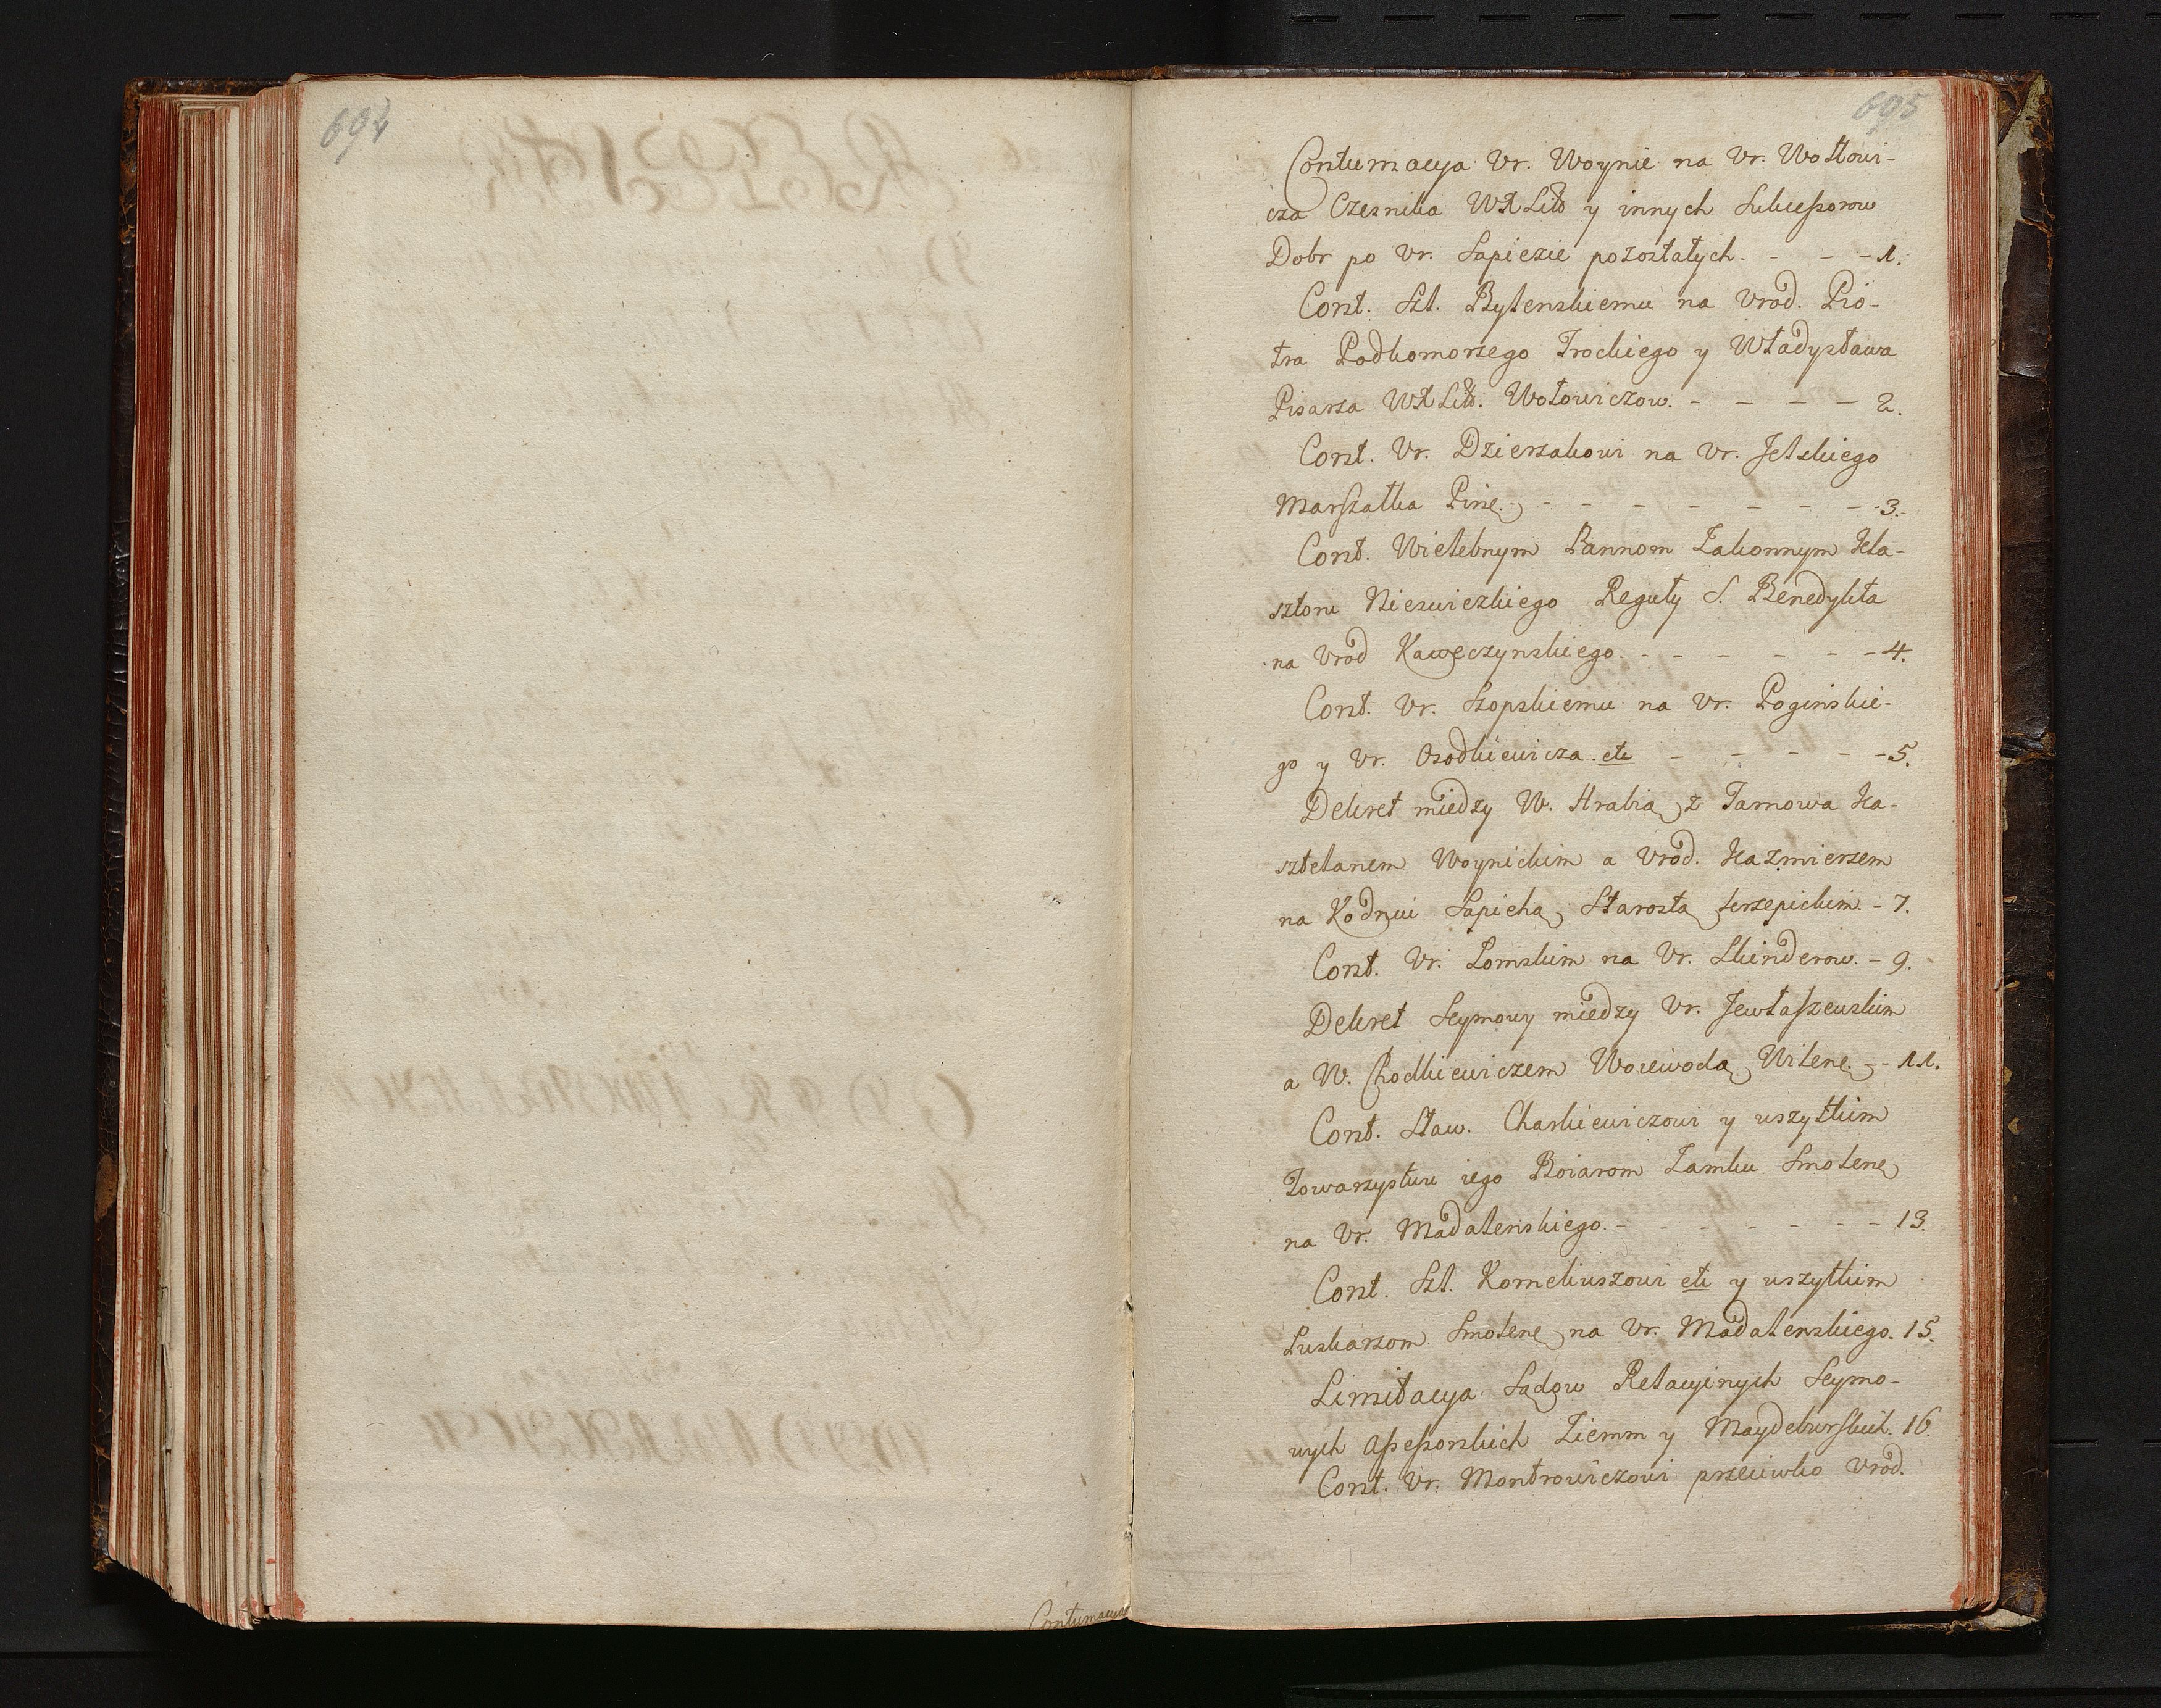 694
Contumacya
695
Contumacya Ur. Woynie na Ur. Wołłowi-
cza Czesnika WXLitt y innych Sukcessorow
Dobr po Ur. Sapiezie pozostałych. - - - 1.
Cont. Szl. Bytenskiemu na Urod. Pio-
tra Podkomorzego Trockiego y Władysława
Pisarza WXLitt. Wołowiczow. - - - - 2.
Cont. Ur. Dzierzakowi na Ur. Jelskiego
Marszałka Pinę. - - - - - - - - 3.
Cont. Wielebnym Pannom Zakonnym Kla-
sztoru Nieswiezkiego Reguły S. Benedykta
na Urod Kawęczynskiego. - - - - - - 4.
Cont. Ur. Szopskiemu na Ur. Pogińskie-
go y Ur. Osodkiewicza. etc - - - - - 5.
Dekret między W. Hrabią z Tarnowa Ka-
sztelanem Woynickim a Urod. Kazmierzem
na Kodnui Sapiehą, Starostą krzepickim. - 7.
Cont. Ur. Łomskim na Ur. Skinderow. - 9.
Dekret Seymowy między Ur. Jewłaszewskim
a W. Chodkiewiczem Woiewodą Wilenę. - 11.
Cont. Sław. Charkiewiczowi y wszytkim
Towarzystwu iego Boiarom Zamku Smolenę
na Ur. Madalenskiego. - - - - - - - 13.
Cont. Szl. Korneliuszowi etc y wszytkim
Puszkarzom Smolenę na Ur. Madalenskiego. 15.
Limitacya Sądow Relacyinych Seymo-
wych Assessorskich Ziemm y Maydeburskich. 16.
Cont. Ur. Montrowiczowi przeciwko Urod.